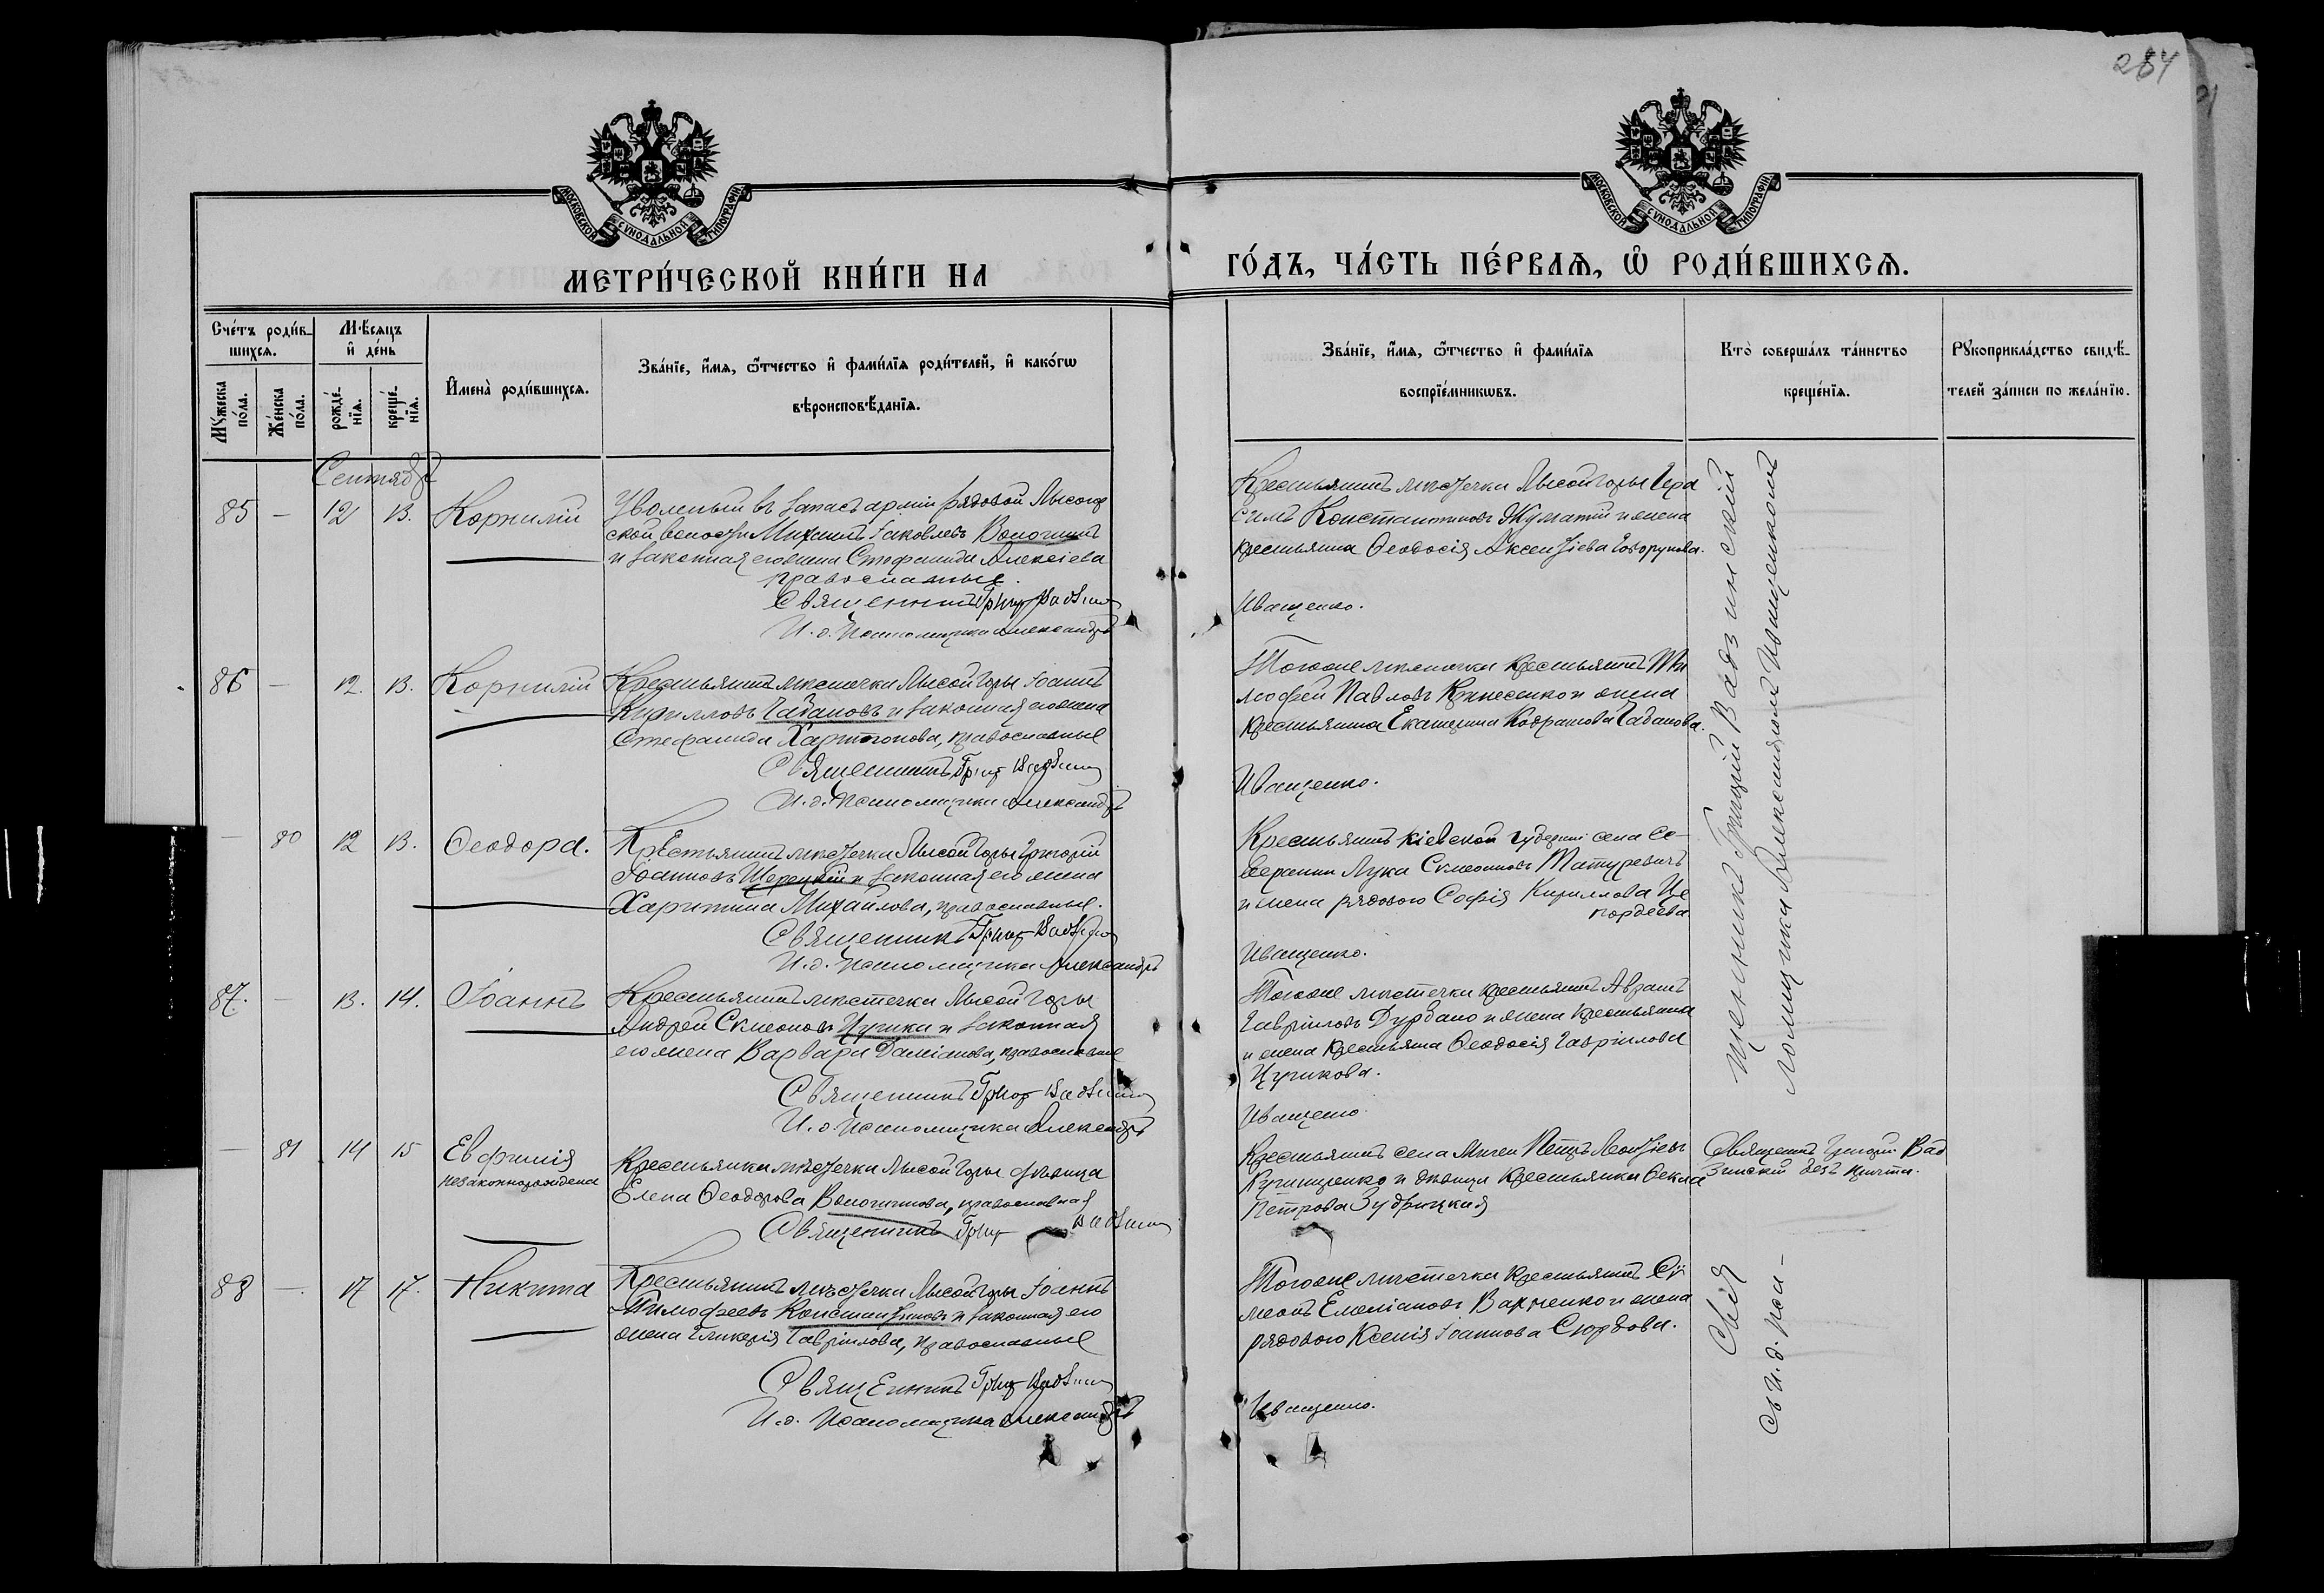 264
МОСКОВСКОЙ СУНОДАЛЬНОЙ ТИПОГРАФІИ
МОСКОВСКОЙ СУНОДАЛЬНОЙ ТИПОГРАФІИ
МЕТРИ́ЧЕСКОЙ КНИ́ГИ НА
ГО́ДЪ, ЧА́СТЬ ПЕ́РВАѦ, Ѡ҆ РОДИ́ВШИХСѦ.
Сче́тъ роди́в-
шихсѧ.
Мѣ́сѧцъ
и҆ де́нь
Мꙋ́жеска
по́ла.
Же́нска
по́ла.
рожде́-
нїѧ.
креще́-
нїѧ.
И҆мена̀ роди́вшихсѧ.
Зва́нїе, и҆́мѧ, ѻ҆́тчество и҆ фами́лїѧ роди́телей, и҆ како́гѡ
вѣроисповѣ́данїѧ.
Зва́нїе, и҆́мѧ, ѻ҆́тчество и҆ фами́лїѧ
воспрїе́мникѡвъ.
Кто̀ соверша́лъ та́инство
креще́нїѧ.
Рꙋкоприкла́дство свидѣ́-
телей за́писи по жела́нїю.
Сентябр
85 — 12 13. Корнилій
Уволеный въ запасъ арміи рядовой Лысогор
ской волости Михаилъ Іаковлевъ Волошинъ
и законная его жена Стефанида Алексіева
православные.
Священникъ Григ Вадзин
И. д. Псаломщика Александръ
Крестьянинъ мѣстечка Лысой горы Гера
симъ Константиновъ и жена
крестьянина Ѳеодосія Авксентіева Говорунова.
Иващенко.
86 — 12. 13. Корнилій
Крестьянинъ мѣстечка Лысой Горы Іоаннъ
Кирилловъ Чабановъ и законная его жена
Стефанида Харитонова, православные
Священникъ Григ Вадзин
И. д. Псаломщика Александръ
Тогоже мѣстечка крестьянинъ Ти
мофей Павловъ и жена
крестьянина Екатерина Кодратова Чабанова.
Иващенко.
— 80 12 13. Ѳеодора.
Крестьянинъ мѣстечка Лысой Горы Григорій
Іоанновъ Шерецкій и законная его жена
Харитина Михайлова, православные.
Священникъ Григ Вадзин
И. д. Псаломщика Александръ
Крестьянинъ Кіевской губерніи села Се-
веренки Лука Симеоновъ Матуревичъ
и жена рядового Софія Кириллова Це
пордеева
Иващенко.
87. — 13. 14. Іоаннъ
Крестьянинъ мѣстечка Лысой Горы
Андрей Симеоновъ Цурика и законная
его жена Варвара Даміанова, православные
Священникъ Григ Вадзин
И. д. Псаломщика Александръ
Тогоже мѣстечка крестьянинъ Аврамъ
Гавріиловъ Дурбало и жена крестьянина
и жена крестьяна Ѳеодосія Гавріилова
Цурикова.
Иващенко.
— 81 14 15 Евфимія
незаконнорождена
Крестьянка мѣстечка Лысой Горы дѣвица
Елена Ѳеодорова Волошинова, православная
Священникъ Григ Вадзин
Крестьянинъ села Мигеи Петръ Леонтіевъ
и дѣвица крестьянка Ѳекла
Петрова Зудрицкая
Священникъ Григорій Вад
зинскій безъ причта.
88 —. 17 17. Никита
Крестьянинъ мѣстечка Лысой Горы Іоаннъ
Тимофеевъ Константиновъ и законная его
жена Гликерія Гавріилова, православные
Священникъ Григ Вадзин
И. д. Псаломщика Александръ
Тогоже мѣстечка крестьянинъ Си
меонъ Емеліановъ Варченко и жена
рядового Ксенія Іоаннова Сюрбова.
Иващенко.
Свя
щенникъ Григорій Вадзинскій
съ И. д. Пса-
ломщика Александромъ Иващенкомъ